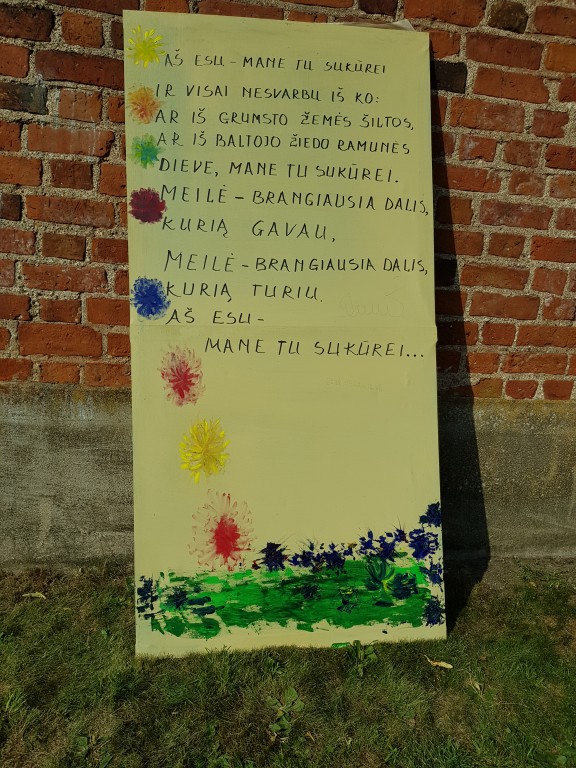 AŠ ESU - MANE TU SUKŪREI
IR VISAI NESVARBU IŠ KO:
AR IŠ GRUMSTO ŽEMĖS ŠILTOS,
AR IŠ BALTOJO ŽIEDO RAMUNĖS
DIEVE, MANE TU SUKŪREI.
MEILĖ - BRANGIAUSIA DALIS,
KURIĄ GAVAU,
MEILĖ - BRANGIAUSIA DALIS,
KURIĄ TURIU.
AŠ ESU -
MANE TU SUKŪREI...